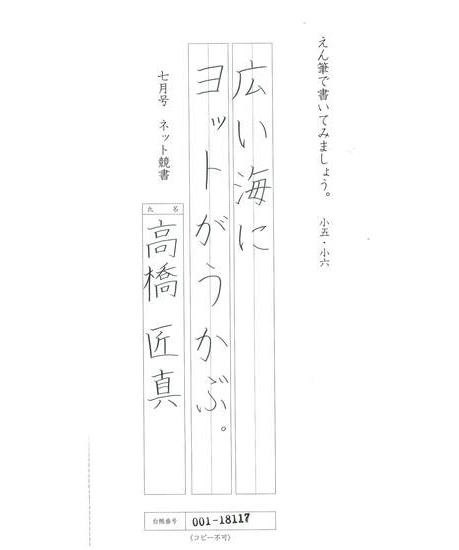 えん筆で書いてみましょう。 小五・小六
広い海に
ヨットがうかぶ。
七月号 ネット競書
氏名
高橋 匠真
台帳番号 001-18117
(コピー不可)